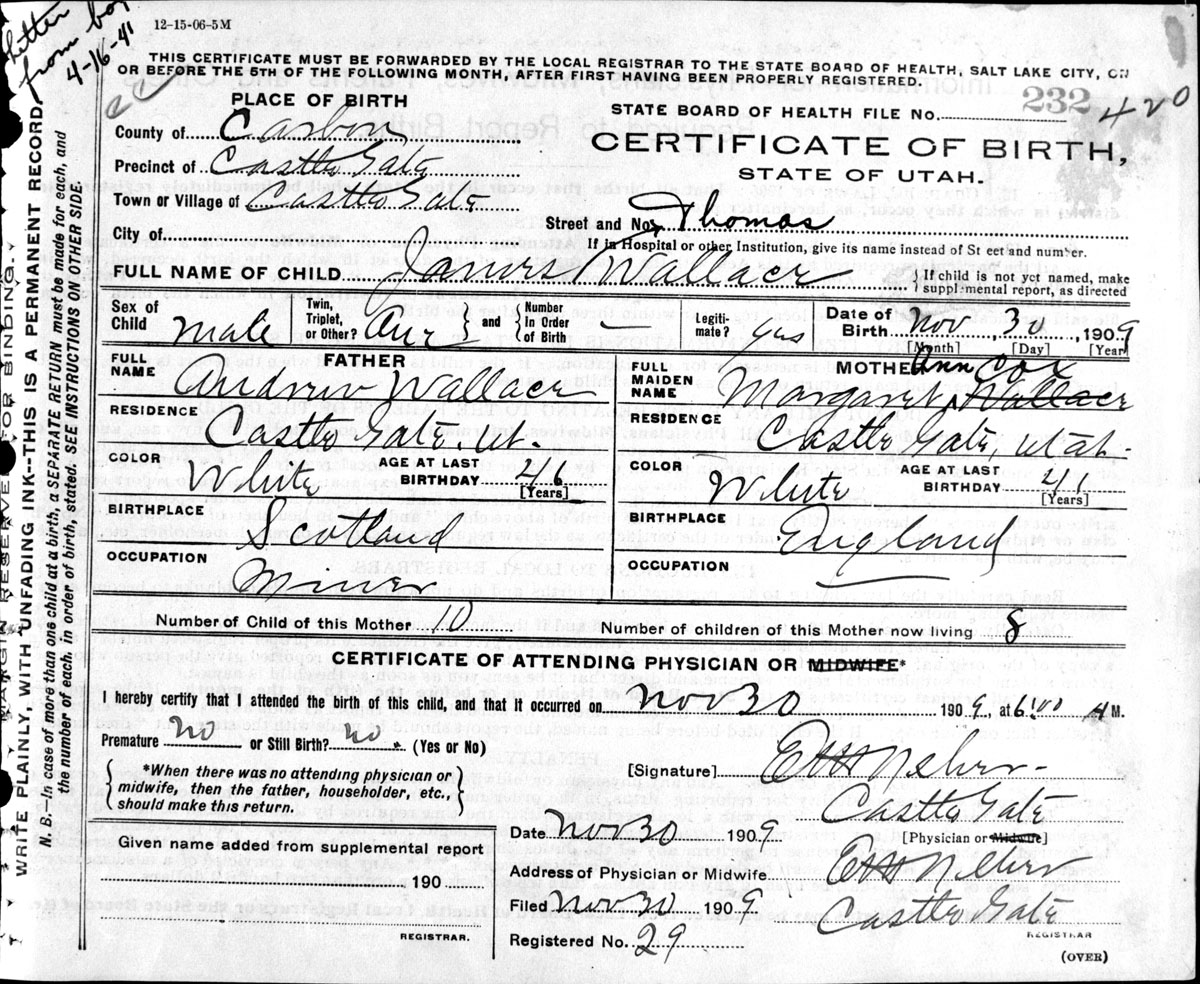 Letter
from boy
4-16-41
12-15-06-5M
THIS CERTIFICATE MUST BE FORWARDED BY THE LOCAL REGISTRAR TO THE STATE BOARD OF HEALTH, SALT LAKE CITY, ON
OR BEFORE THE 5TH OF THE FOLLOWING MONTH, AFTER FIRST HAVING BEEN PROPERLY REGISTERED.
PLACE OF BIRTH
STATE BOARD OF HEALTH FILE NO. 232 420
County of Carbon
CERTIFICATE OF BIRTH,
Precinct of Castle Gate
STATE OF UTAH.
Town or Village of Castle Gate
Street and No. Thomas
City of
If in Hospital or other Institution, give its name instead of St eet and number.
FULL NAME OF CHILD James Wallace
{ If child is not yet named, make
supplemental report, as directed
Sex of Child male Twin, Triplet, or Other? } and { Number In Order of Birth — Legiti- mate? yes Date of Birth Nov 30, 1909
[Month] [Day] [Year]
FULL NAME FATHER Andrew Wallace
FULL MAIDEN NAME MOTHER Margaret Ann Cox Wallace
RESIDENCE Castle Gate. Ut
RESIDENCE Castle Gate, Utah.
COLOR White AGE AT LAST BIRTHDAY 46 [Years]
COLOR White AGE AT LAST BIRTHDAY 41 [Years]
BIRTHPLACE Scotland
BIRTHPLACE England
OCCUPATION Miner
OCCUPATION
Number of Child of this Mother 10 Number of children of this Mother now living 8
CERTIFICATE OF ATTENDING PHYSICIAN OR MIDWIFE*
I hereby certify that I attended the birth of this child, and that it occurred on Nov 30 1909, at 6:00 A M.
Premature no or Still Birth? no. (Yes or No)
{ *When there was no attending physician or
midwife, then the father, householder, etc.,
should make this return. }
[Signature]
Castle Gate
Date Nov 30 1909 [Physician or Midwife]
Given name added from supplemental report
190
REGISTRAR.
Address of Physician or Midwife
Filed Nov 30 1909 Castle Gate
REGISTRAR
Registered No. 29
(OVER)
MARGIN RESERVED FOR BINDING.
WRITE PLAINLY, WITH UNFADING INK--THIS IS A PERMANENT RECORD.
N. B.—In case of more than one child at a birth, a SEPARATE RETURN must be made for each, and
the number of each, in order of birth, stated. SEE INSTRUCTIONS ON OTHER SIDE.